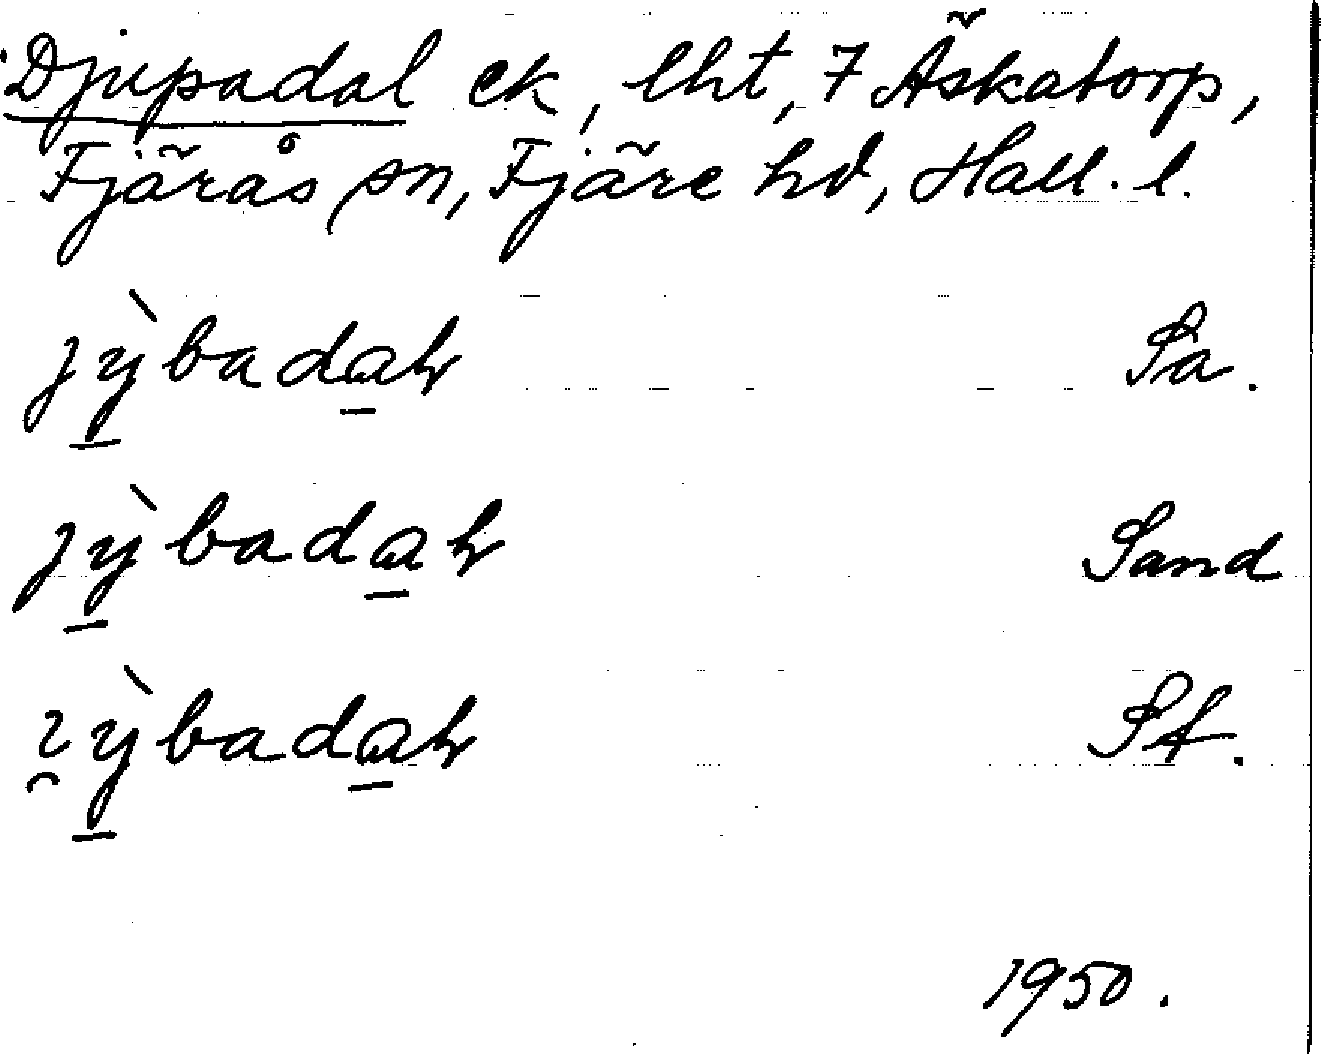 Djupadal ek, lht, 7 Äskatorp,
Fjärås sn, Fjäre hd, Hall. l.
jỳ̠bada̠ɫ Sa.
jỳ̠bada̠ɫ Sand
ɿ̯ỳ̠bada̠ɫ St.
1950.